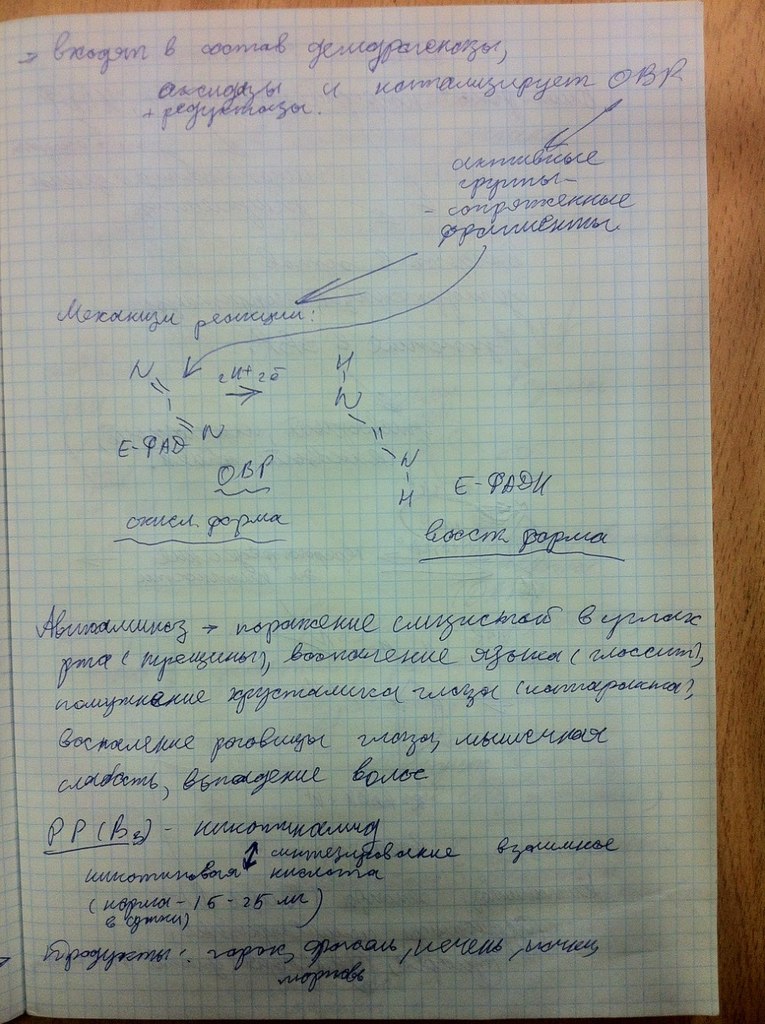 → входят в состав дегидрогеназы,
оксидазы и катализирует ОВР
+ редуктазы.
активные
группы -
- сопряженные
фрагменты.
Механизм реакции:
N
2H+ 2ē
H
N
N
E-ФАД
N
H
ОВР
E-ФАДН
окисл. форма
восст форма
Авитаминоз → поражение слизистой в углах
рта (трещины), воспаление языка (глоссит),
помутнение хрусталика глаза (каттаракта),
воспаление роговицы глаза, мышечная
слабость, выпадение волос
PP (B3) - никотинамид
синтезирование взаимное
никотиновая кислота
(норма - 15 - 25 мг)
в сутки
Продукты: горох, дрожжи, печень, почки,
морковь